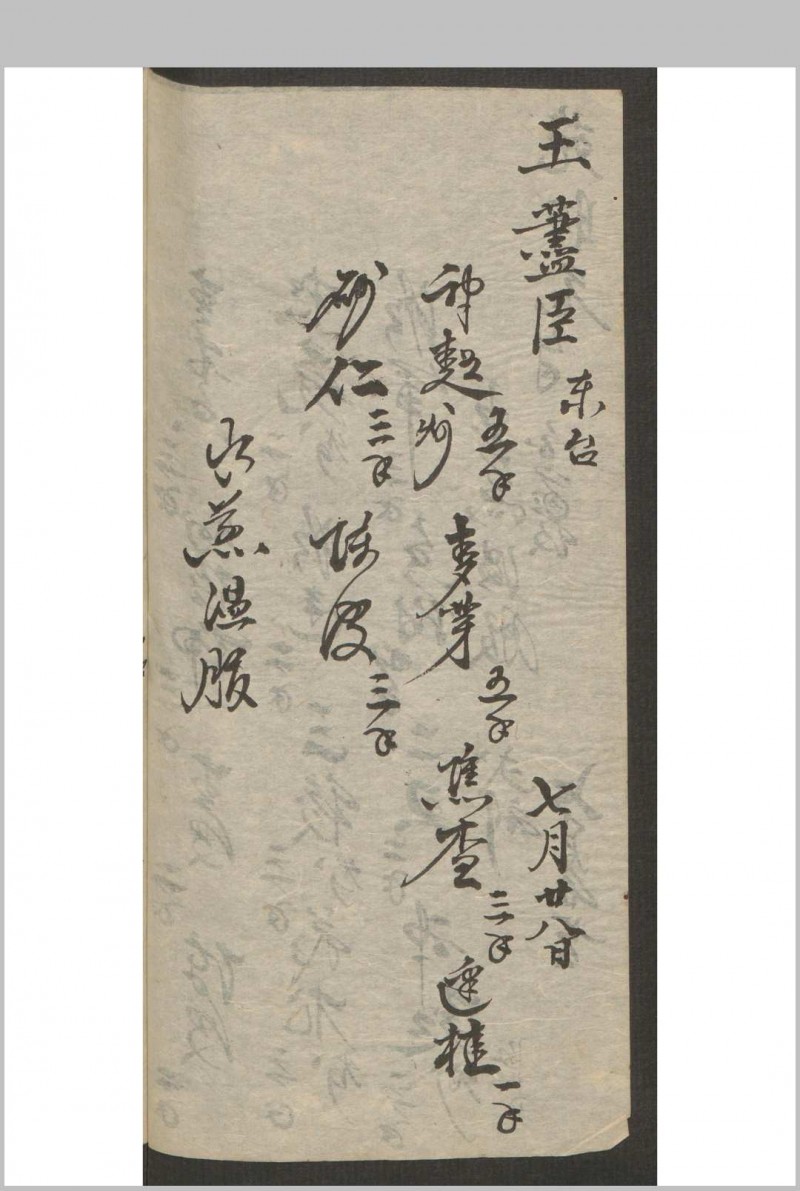 王藎臣 东台 七月廿八日
神麯炒五千 麦芽五千 焦查三千 边桂一千
砂仁三千 陈皮三千
水煎温服